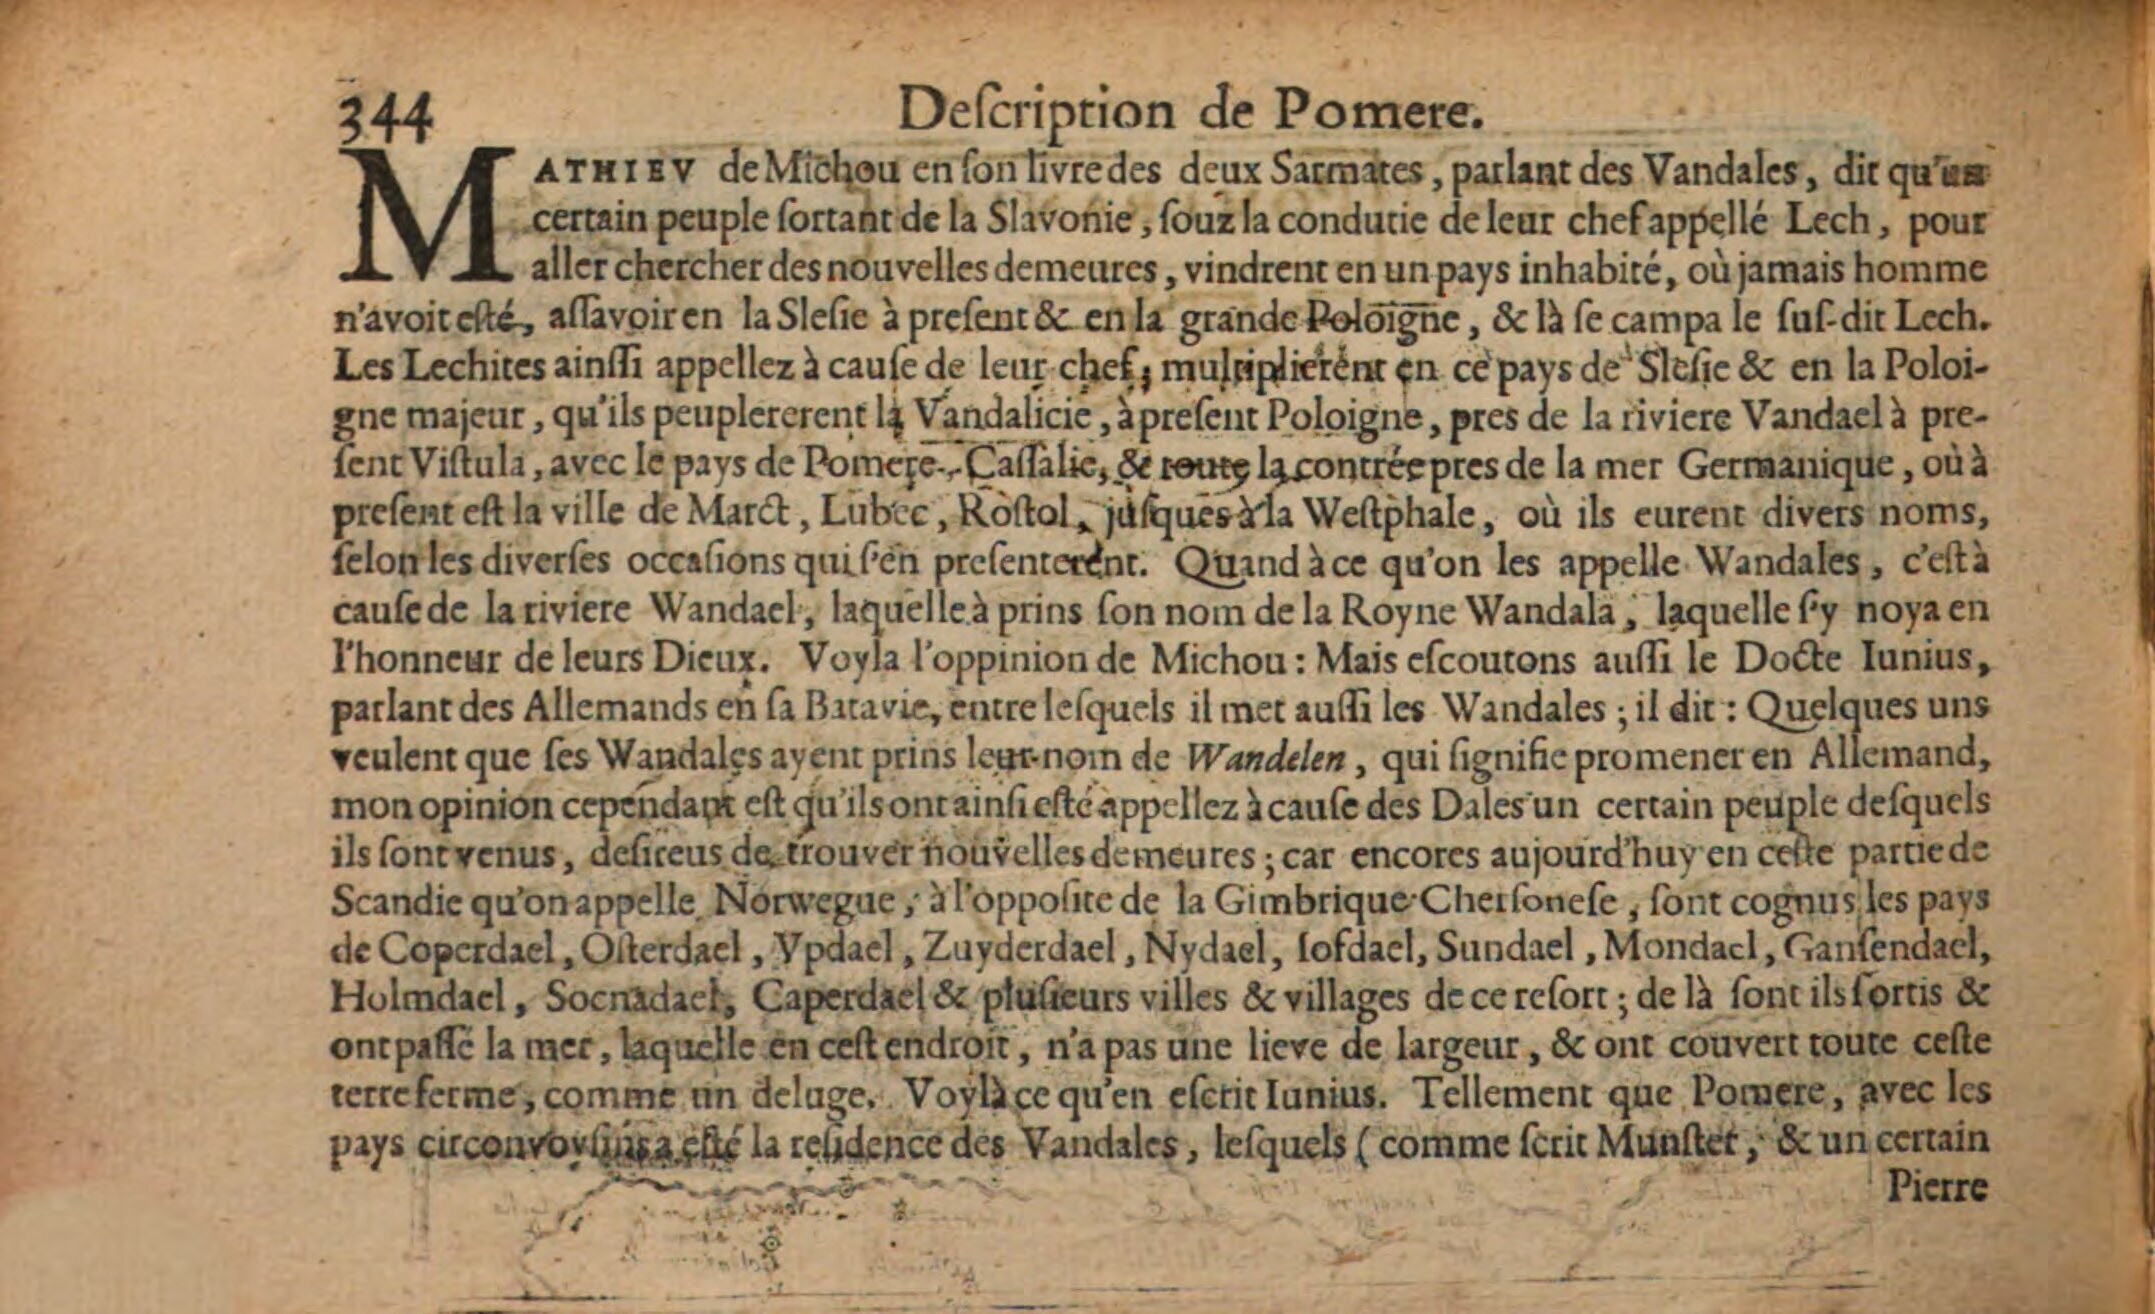 344 Deſcription de Pomere.
MATHIEV de Michou en ſon livre des deux Sarmates, parlant des Vandales, dit qu'un
certain peuple ſortant de la Slavonie, ſouz la condutie de leur chef appellé Lech, pour
aller chercher des nouvelles demeures, vindrent en un pays inhabité, où jamais homme
n'avoit eſté, aſſavoir en la Sleſie à preſent & en la grande Poloigne, & là ſe campa le ſuſ-dit Lech.
Les Lechites ainſſi appellez à cauſe de leur chef, multiplierent en ce pays de Sleſie & en la Poloi-
gne majeur, qu'ils peuplererent la Vandalicie, à preſent Poloigne, pres de la riviere Vandael à pre-
ſent Viſtula, avec le pays de Pomere, Caſſalie, & toute la contrée pres de la mer Germanique, où à
preſent eſt la ville de Marct, Lubec, Roſtol, juſques à la Weſtphale, où ils eurent divers noms,
ſelon les diverſes occaſions qui ſ'en preſenterent. Quand à ce qu'on les appelle Wandales, c'eſt à
cauſe de la riviere Wandael, laquelle à prins ſon nom de la Royne Wandala, laquelle ſ'y noya en
l'honneur de leurs Dieux. Voyla l'oppinion de Michou: Mais eſcoutons auſſi le Docte Iunius,
parlant des Allemands en ſa Batavie, entre leſquels il met auſſi les Wandales; il dit: Quelques uns
veulent que ſes Wandales ayent prins leur nom de Wandelen, qui ſignifie promener en Allemand,
mon opinion cependant eſt qu'ils ont ainſi eſté appellez à cauſe des Dales un certain peuple deſquels
ils ſont venus, deſireus de trouver nouvelles demeures; car encores aujourd'huy en ceſte partie de
Scandie qu'on appelle Norwegue, à l'oppoſite de la Gimbrique Cherſoneſe, ſont cognus les pays
de Coperdael, Oſterdael, Vpdael, Zuyderdael, Nydael, Iofdael, Sundael, Mondael, Ganſendael,
Holmdael, Socnadael, Caperdael & pluſieurs villes & villages de ce reſort; de là ſont ils ſortis &
ont paſſé la mer, laquelle en ceſt endroit, n'a pas une lieve de largeur, & ont couvert toute ceſte
terre ferme, comme un deluge. Voylà ce qu'en eſcrit Iunius. Tellement que Pomere, avec les
pays circonvoyſins a eſté la reſidence des Vandales, leſquels (comme ſcrit Munſter, & un certain
Pierre